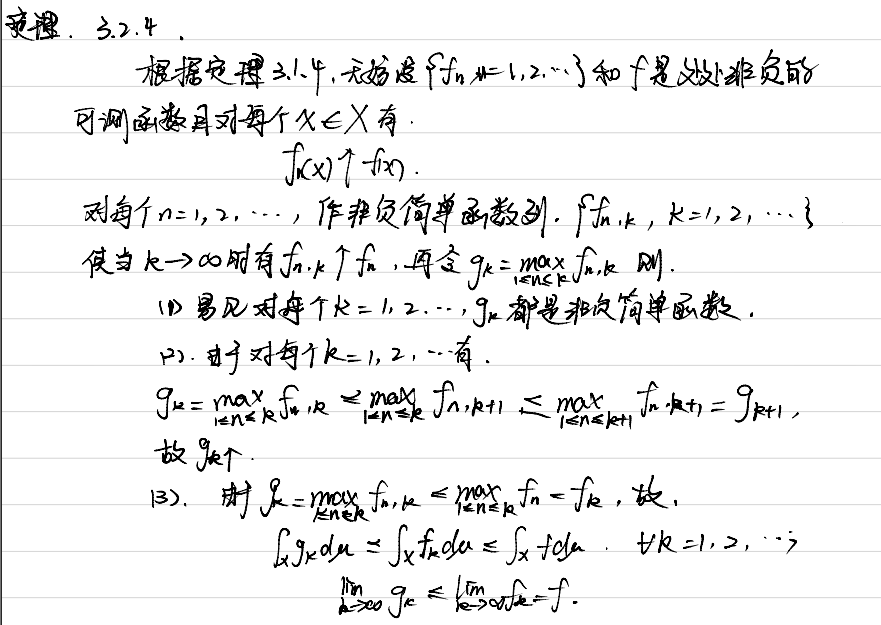 定理. 3.2.4.
根据定理3.1.4,无妨设{fn, n=1,2,…}和f是处处非负的
可测函数且对每个x∈X有.
fn(x)↑f(x).
对每个n=1,2,…,作非负简单函数列.{fn,k, k=1,2,…}
使当k→∞时有fn,k↑fn,再令gk=max_{1≤n≤k} fn,k 则.
(1) 易见对每个k=1,2…,gk都是非负简单函数.
(2). 由于对每个k=1,2,…有.
gk=max_{1≤n≤k} fn,k ≤ max_{1≤n≤k} fn,k+1 ≤ max_{1≤n≤k+1} fn,k+1 = gk+1,
故gk↑.
(3). 由于gk=max_{1≤n≤k} fn,k ≤ max_{1≤n≤k} fn = fk,故,
∫_X gk dμ ≤ ∫_X fk dμ ≤ ∫_X f dμ. ∀k=1,2,…;
lim_{k→∞} gk ≤ lim_{k→∞} fk = f.